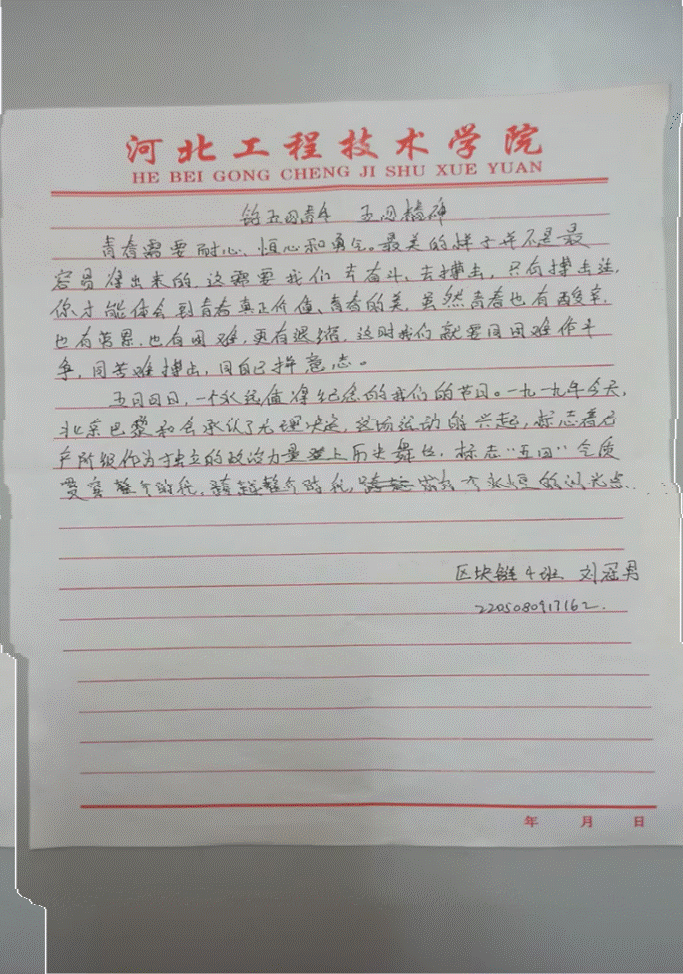 河北工程技术学院
HE BEI GONG CHENG JI SHU XUE YUAN
五四青年 五四精神
青春需要耐心、恒心和勇气。最美的样子并不是最
容易得出来的,这需要我们去奋斗,去搏击,只有搏击过,
你才能体会到青春真正价值、青春的美,虽然青春也有酸辛,
也有劳累,也有困难,更有退缩,这时我们就要同困难作斗
争,同苦难搏击,同自己拼意志。
五月四日,一个永远值得纪念的我们的节日。一九一九年今天,
北京巴黎和会承认了无理决定,这场运动的兴起,标志着
产阶级作为独立的政治力量登上历史舞台,标志“五四”
贯穿整个时代,跨越整个时代,个永恒的闪光点
区块链4班 刘冠男
2205080917162.
年 月 日